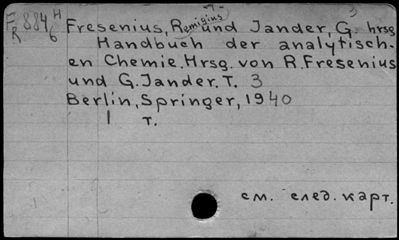 F 884 H
R 6
Fresenius, Remigius und Jander, G. hrsg
Handbuch der analytisch-
en Chemie. Hrsg. von R. Fresenius
und G. Jander. T. 3
Berlin, Springer, 1940
1 т.
см. след. карт.